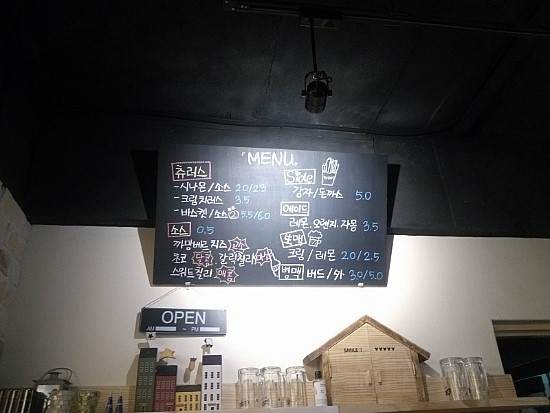 「MENU」
츄러스
- 시나몬/소스 2.0/2.3
- 크림치러스 3.5
- 바스켓/소스 5.5/6.0
소스 0.5
까망베르치즈
초코 달콤 갈릭칠리
스위트칠리 매콤
Side
감자/돈까스 5.0
에이드
레몬.오렌지.자몽 3.5
뚱맥
크림/레몬 2.0/2.5
병맥 버드/ 3.0/5.0
OPEN
AM ~ PM
SMILE!! ♥♥♥♥♥